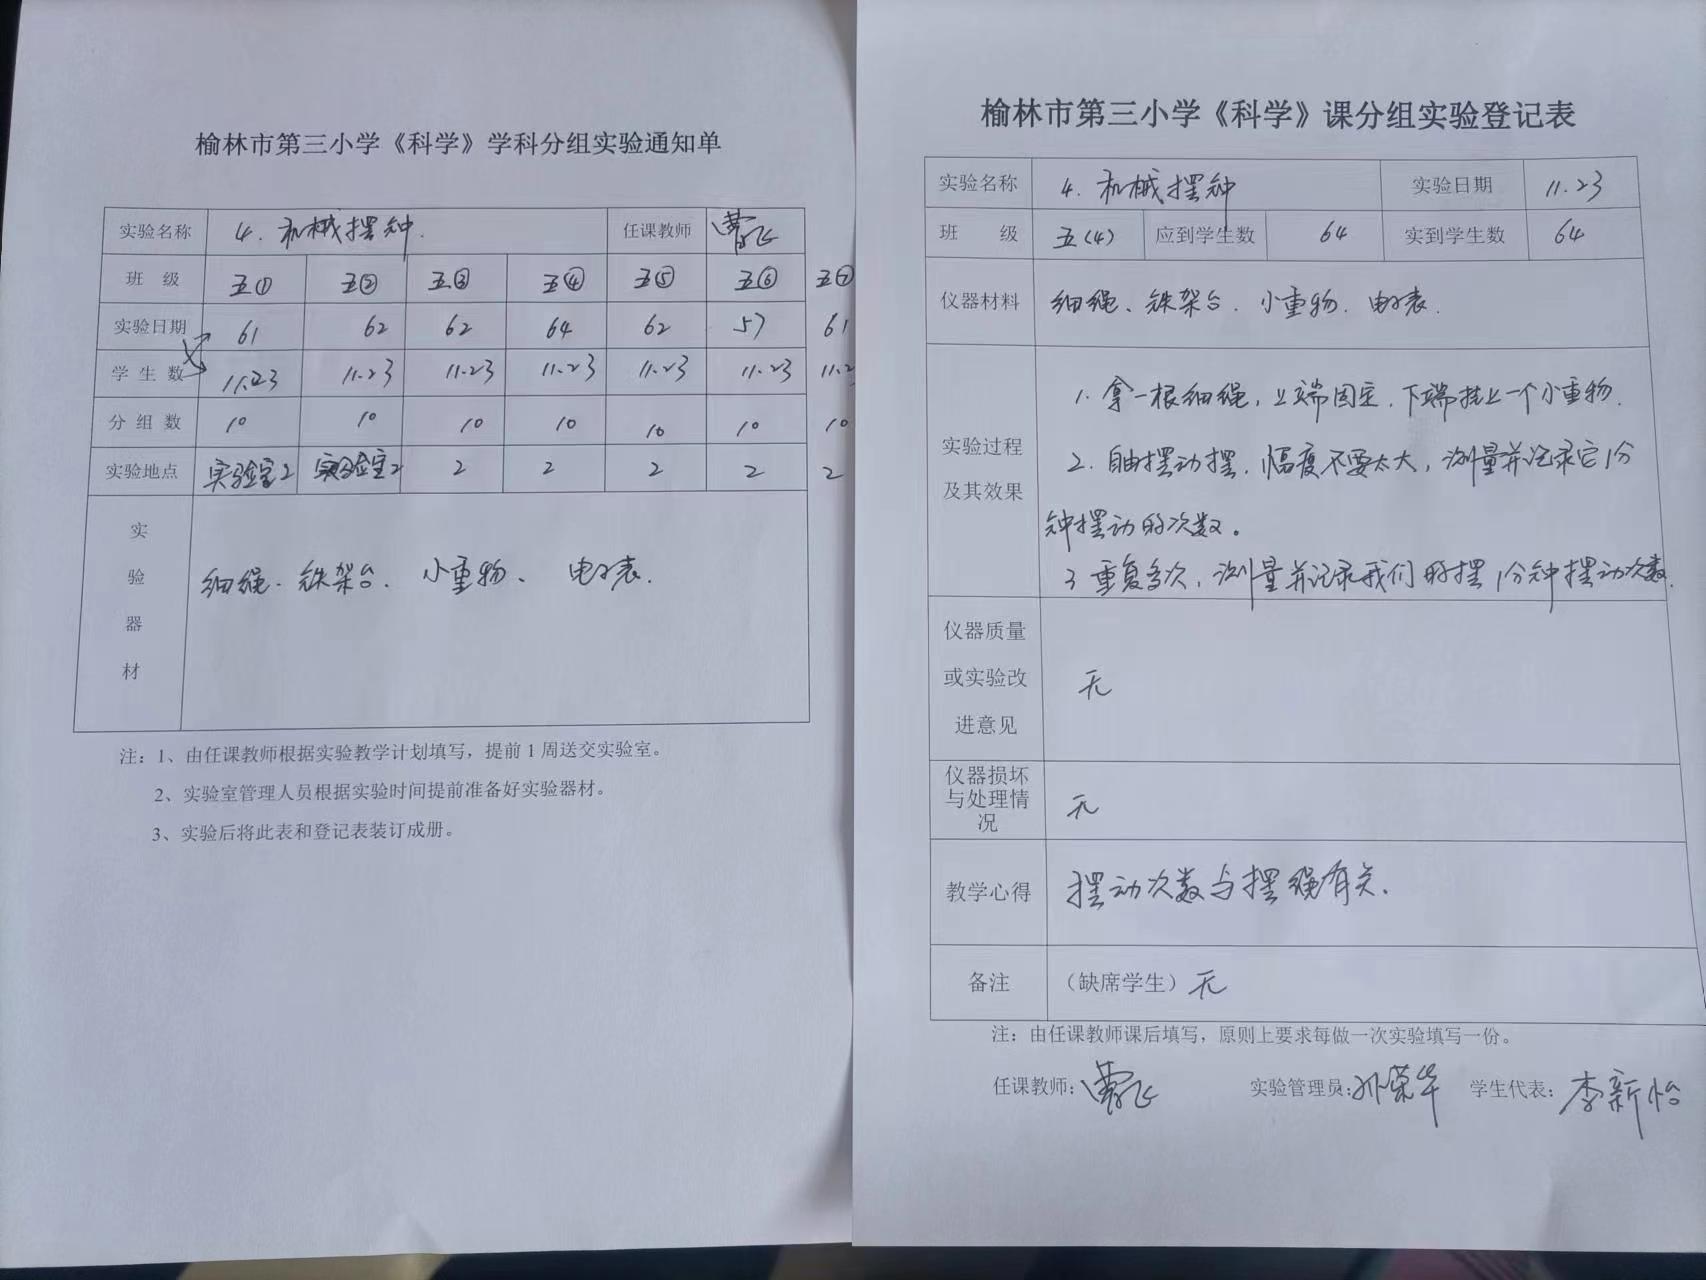 榆林市第三小学《科学》学科分组实验通知单
实验名称 4. 机械摆钟. 任课教师 曹飞
班 级 五① 五② 五③ 五④ 五⑤ 五⑥ 五⑦
实验日期 61 62 62 64 62 57 61
学 生 数 11.23 11.23 11.23 11.23 11.23 11.23 11.2
分 组 数 10 10 10 10 10 10 10
实验地点 实验室2 实验室2 2 2 2 2 2
实
验
器
材
细绳、铁架台、小重物、电子表.
注：1、由任课教师根据实验教学计划填写，提前1周送交实验室。
2、实验室管理人员根据实验时间提前准备好实验器材。
3、实验后将此表和登记表装订成册。
榆林市第三小学《科学》课分组实验登记表
实验名称 4. 机械摆钟 实验日期 11.23
班 级 五(4) 应到学生数 64 实到学生数 64
仪器材料 细绳、铁架台、小重物、电子表.
实验过程
及其效果
1. 拿一根细绳，上端固定，下端挂上一个小重物.
2. 自由摆动摆，幅度不要太大，测量并记录它1分
钟摆动的次数。
3 重复多次，测量并记录我们的摆1分钟摆动次数.
仪器质量
或实验改
进意见
无
仪器损坏
与处理情
况
无
教学心得 摆动次数与摆绳有关.
备注 （缺席学生）无
注：由任课教师课后填写，原则上要求每做一次实验填写一份。
任课教师：曹飞 实验管理员：孙荣华 学生代表：李新怡